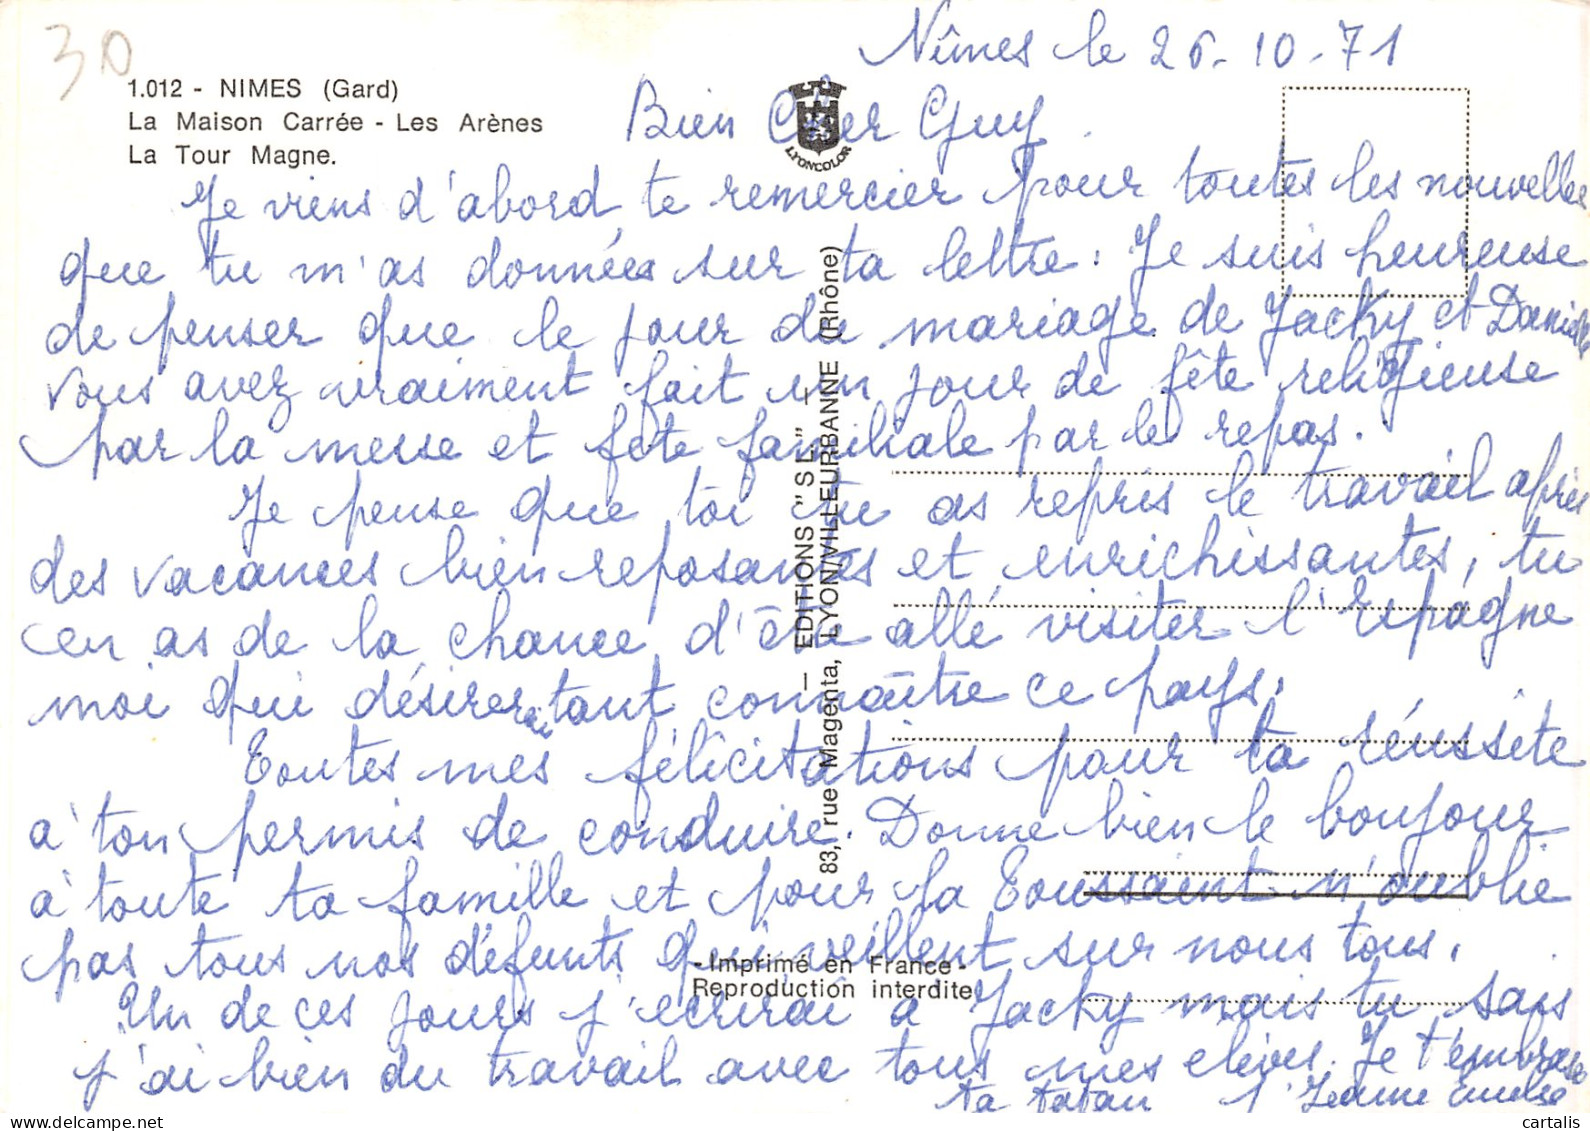 30
1.012 - NIMES (Gard)
La Maison Carrée - Les Arènes
La Tour Magne.
LYONCOLOR
Nîmes le 26-10-71
Bien Cher Guy.
Je viens d'abord te remercier pour toutes les nouvelles
que tu m'as données sur ta lettre. Je suis heureuse
de penser que le jour du mariage de Jacky et Danielle
vous avez vraiment fait un jour de fête religieuse
par la messe et fête familiale par le repas.
Je pense que toi tu as repris le travail après
des vacances bien reposantes et enrichissantes, tu
en as de la chance d'être allé visiter l'Espagne
moi qui désirerai tant connaître ce pays.
Toutes mes félicitations pour ta réussite
à ton permis de conduire. Donne bien le bonjour
à toute ta famille et pour la Toussaint n'oublie
pas tous nos défunts qui veillent sur nous tous.
Un de ces jours j'écrirai à Jacky mais tu sais
j'ai bien du travail avec tous mes elèves. Je t'embrasse
ta tatan Jeanne
— EDITIONS "SL" —
83, rue Magenta, LYON/VILLEURBANNE (Rhône)
- Imprimé en France -
Reproduction interdite
cartalis